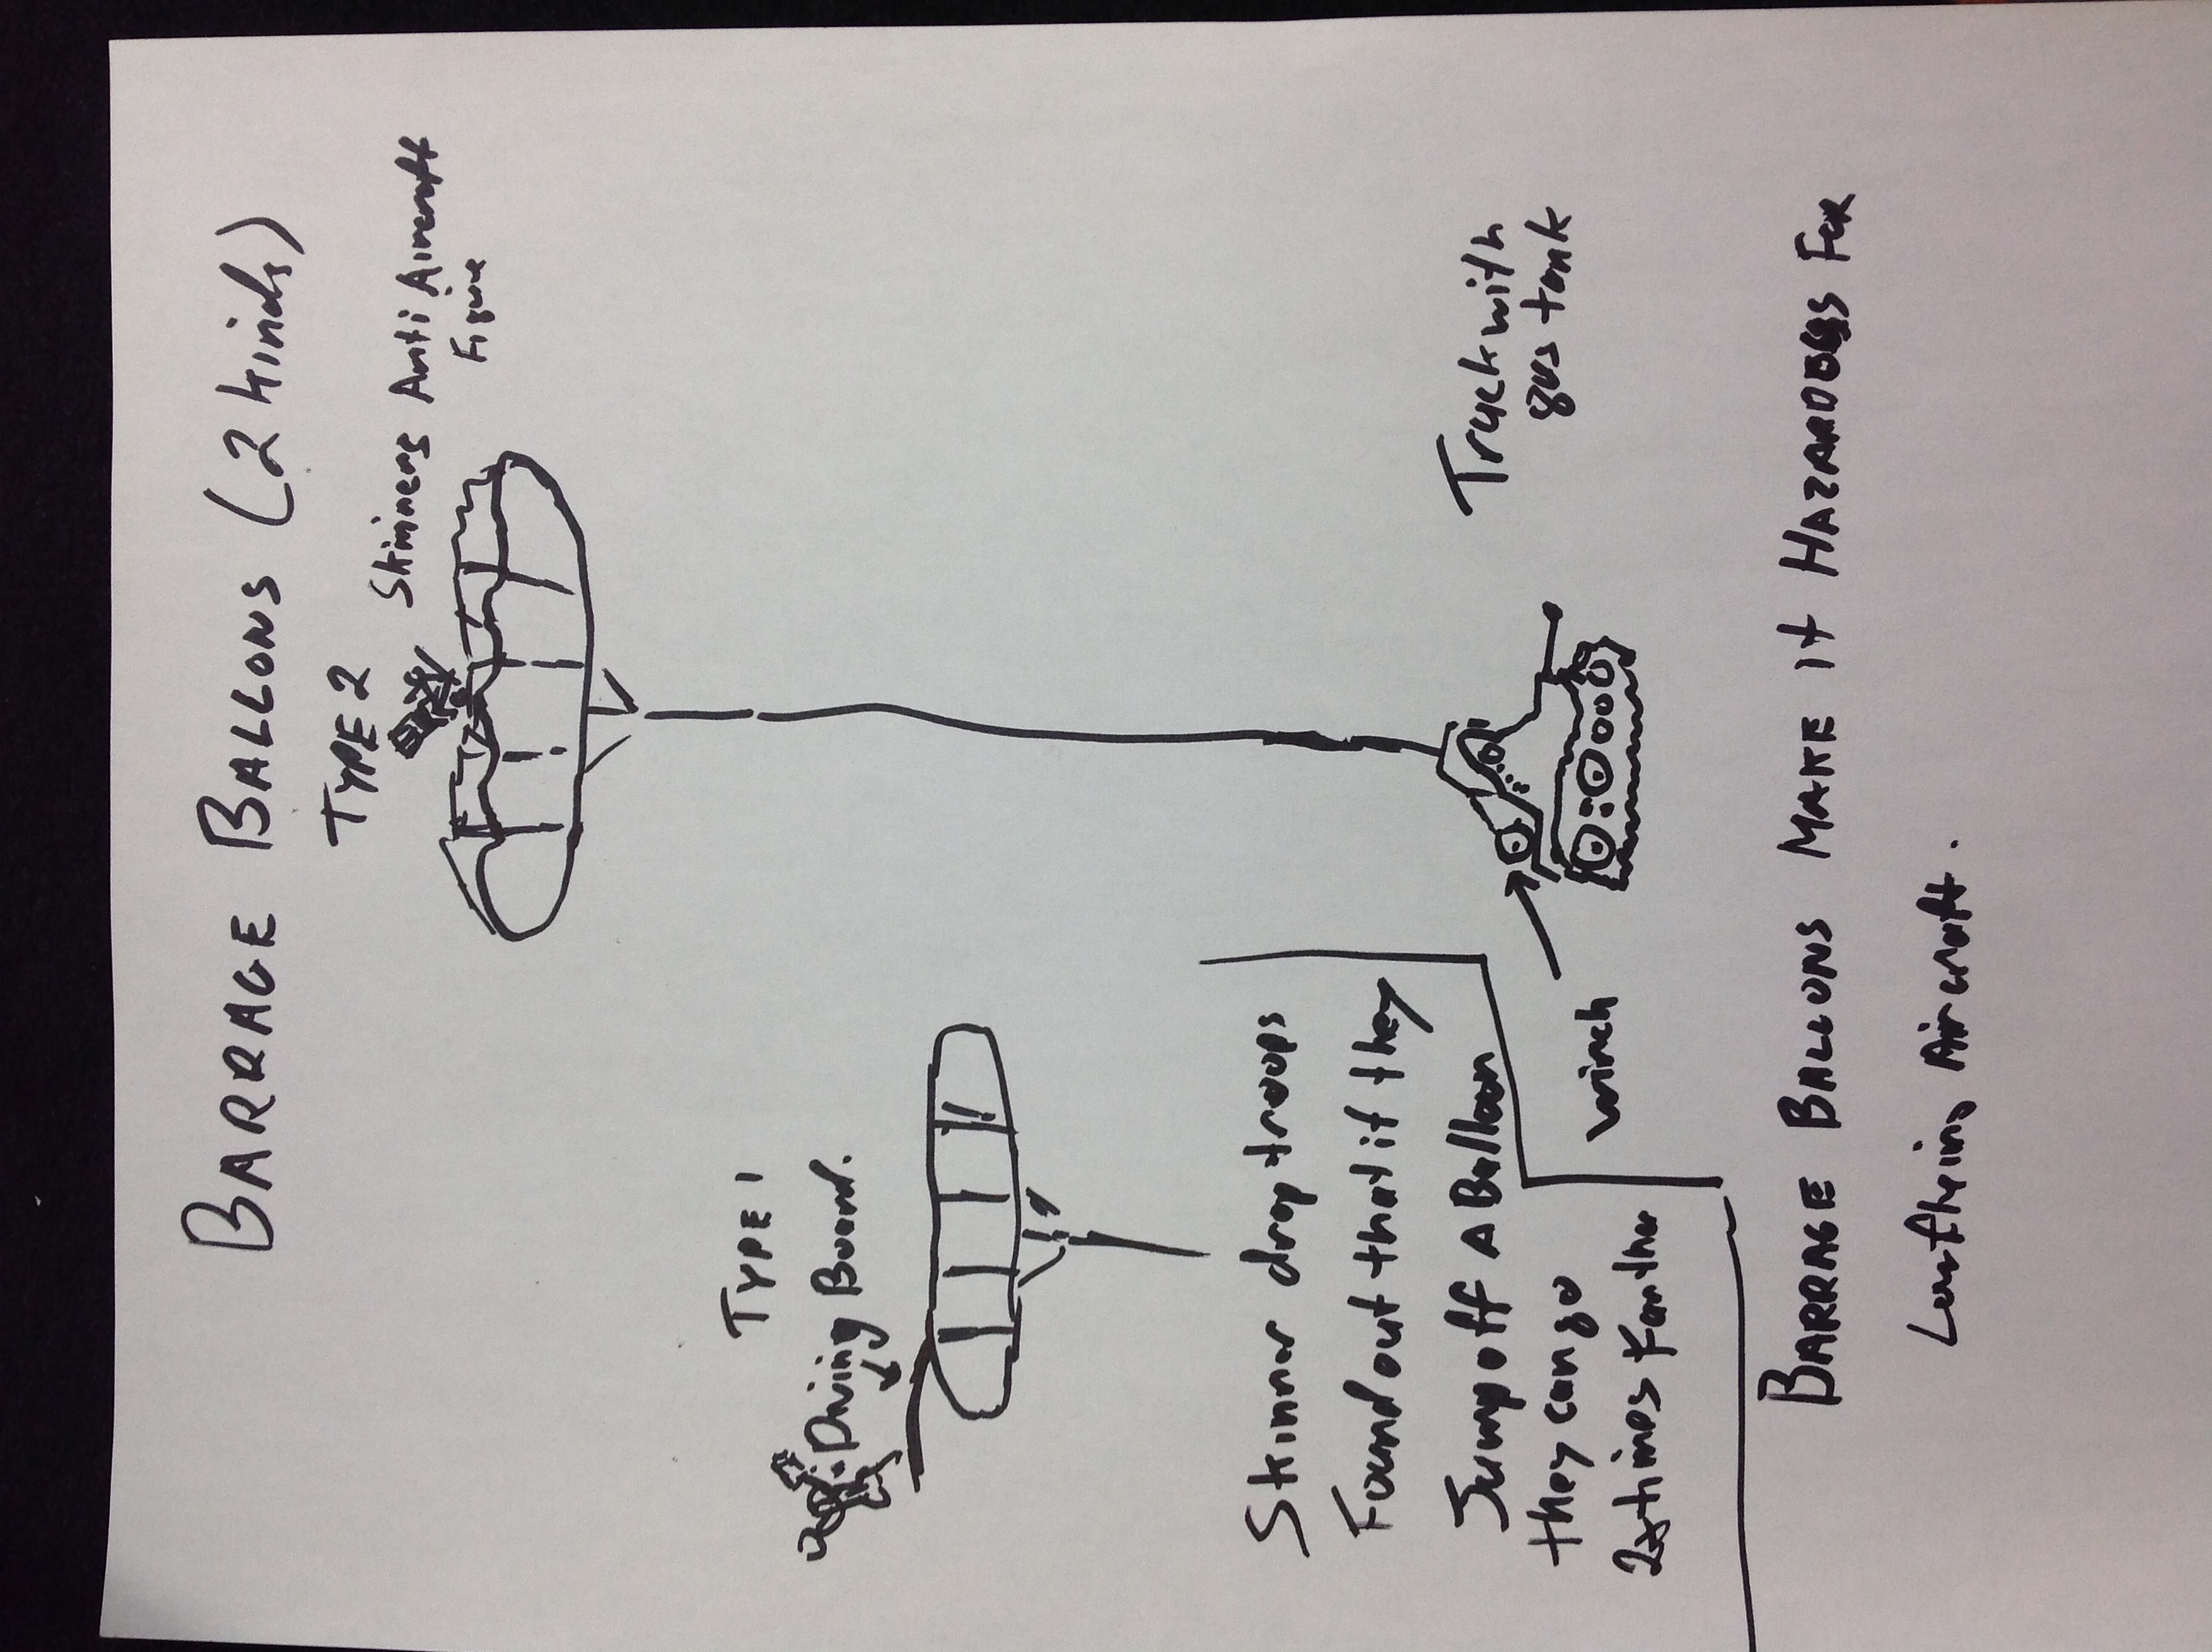 BARRAGE BALLONS (2 kinds)
TYPE 2
Skinners Anti Aircraft
Figure
TYPE 1
Diving Board.
Skinner drop troops
Found out that if they
Jump off A Balloon
they can go
2xtimes Farther
winch
Truck with
gas tank
BARRAGE BALLONS MAKE it HAZARDOUS For
Luftheim Aircraft.